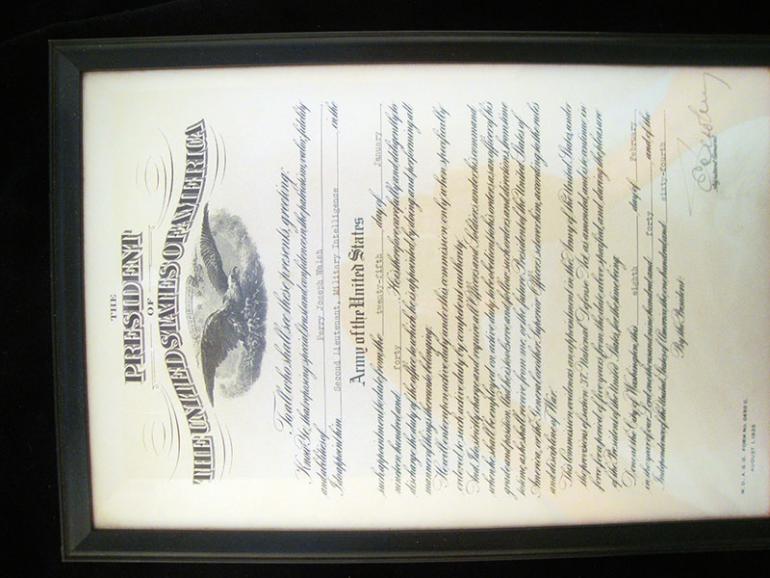 THE
PRESIDENT
OF
THE UNITED STATES OF AMERICA
To all who shall see these presents, greeting:
Know Ye, that reposing special trust and confidence in the patriotism, valor, fidelity
and abilities of Perry Joseph Walsh
I do appoint him Second Lieutenant, Military Intelligence in the
Army of the United States
such appointment to date from the twenty-fifth day of January
nineteen hundred and forty. He is therefore carefully and diligently to
discharge the duty of the office to which he is appointed by doing and performing all
manner of things thereunto belonging.
He will enter upon active duty under this commission only when specifically
ordered to such active duty by competent authority.
And I do strictly charge and require all Officers and Soldiers under his command
when he shall be employed on active duty to be obedient to his orders as an officer of his
grade and position. And he is to observe and follow such orders and directions, from time
to time, as he shall receive from me, or the future President of the United States of
America, or the General or other Superior Officers set over him, according to the rules
and discipline of War.
This Commission evidences an appointment in the Army of the United States, under
the provisions of section 37, National Defense Act, as amended, and is to continue in
force for a period of five years from the date above specified, and during the pleasure
of the President of the United States, for the time being.
Done at the City of Washington, this eighth day of February
in the year of our Lord one thousand nine hundred and forty and of the
Independence of the United States of America the one hundred and sixty-fourth
By the President:
W. D., A. G. O. FORM No. 0650 C.
AUGUST 1, 1935